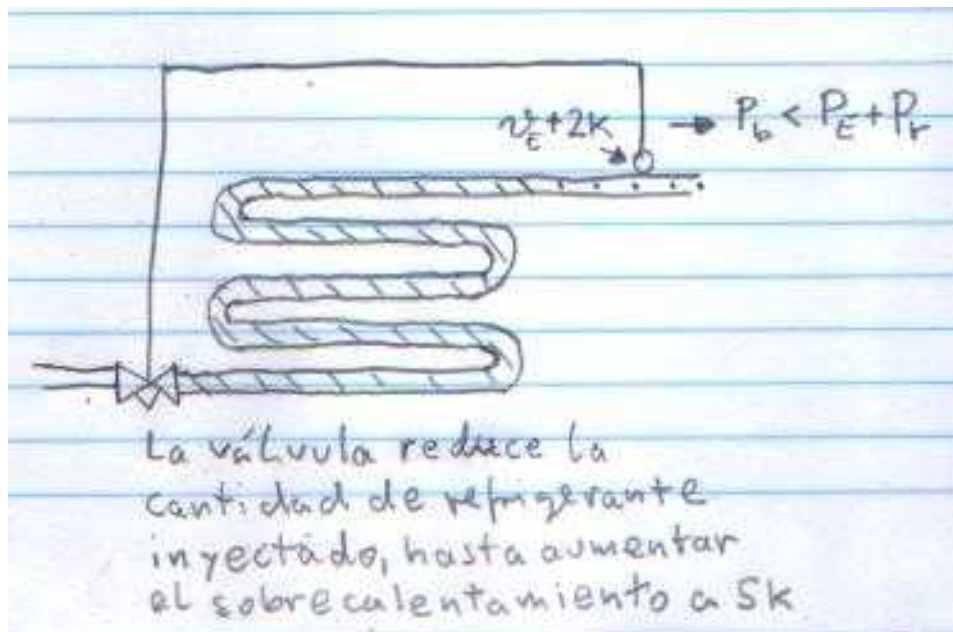 ϑE+2K → Pb < PE + Pr
La válvula reduce la
cantidad de refrigerante
inyectado, hasta aumentar
el sobrecalentamiento a 5k